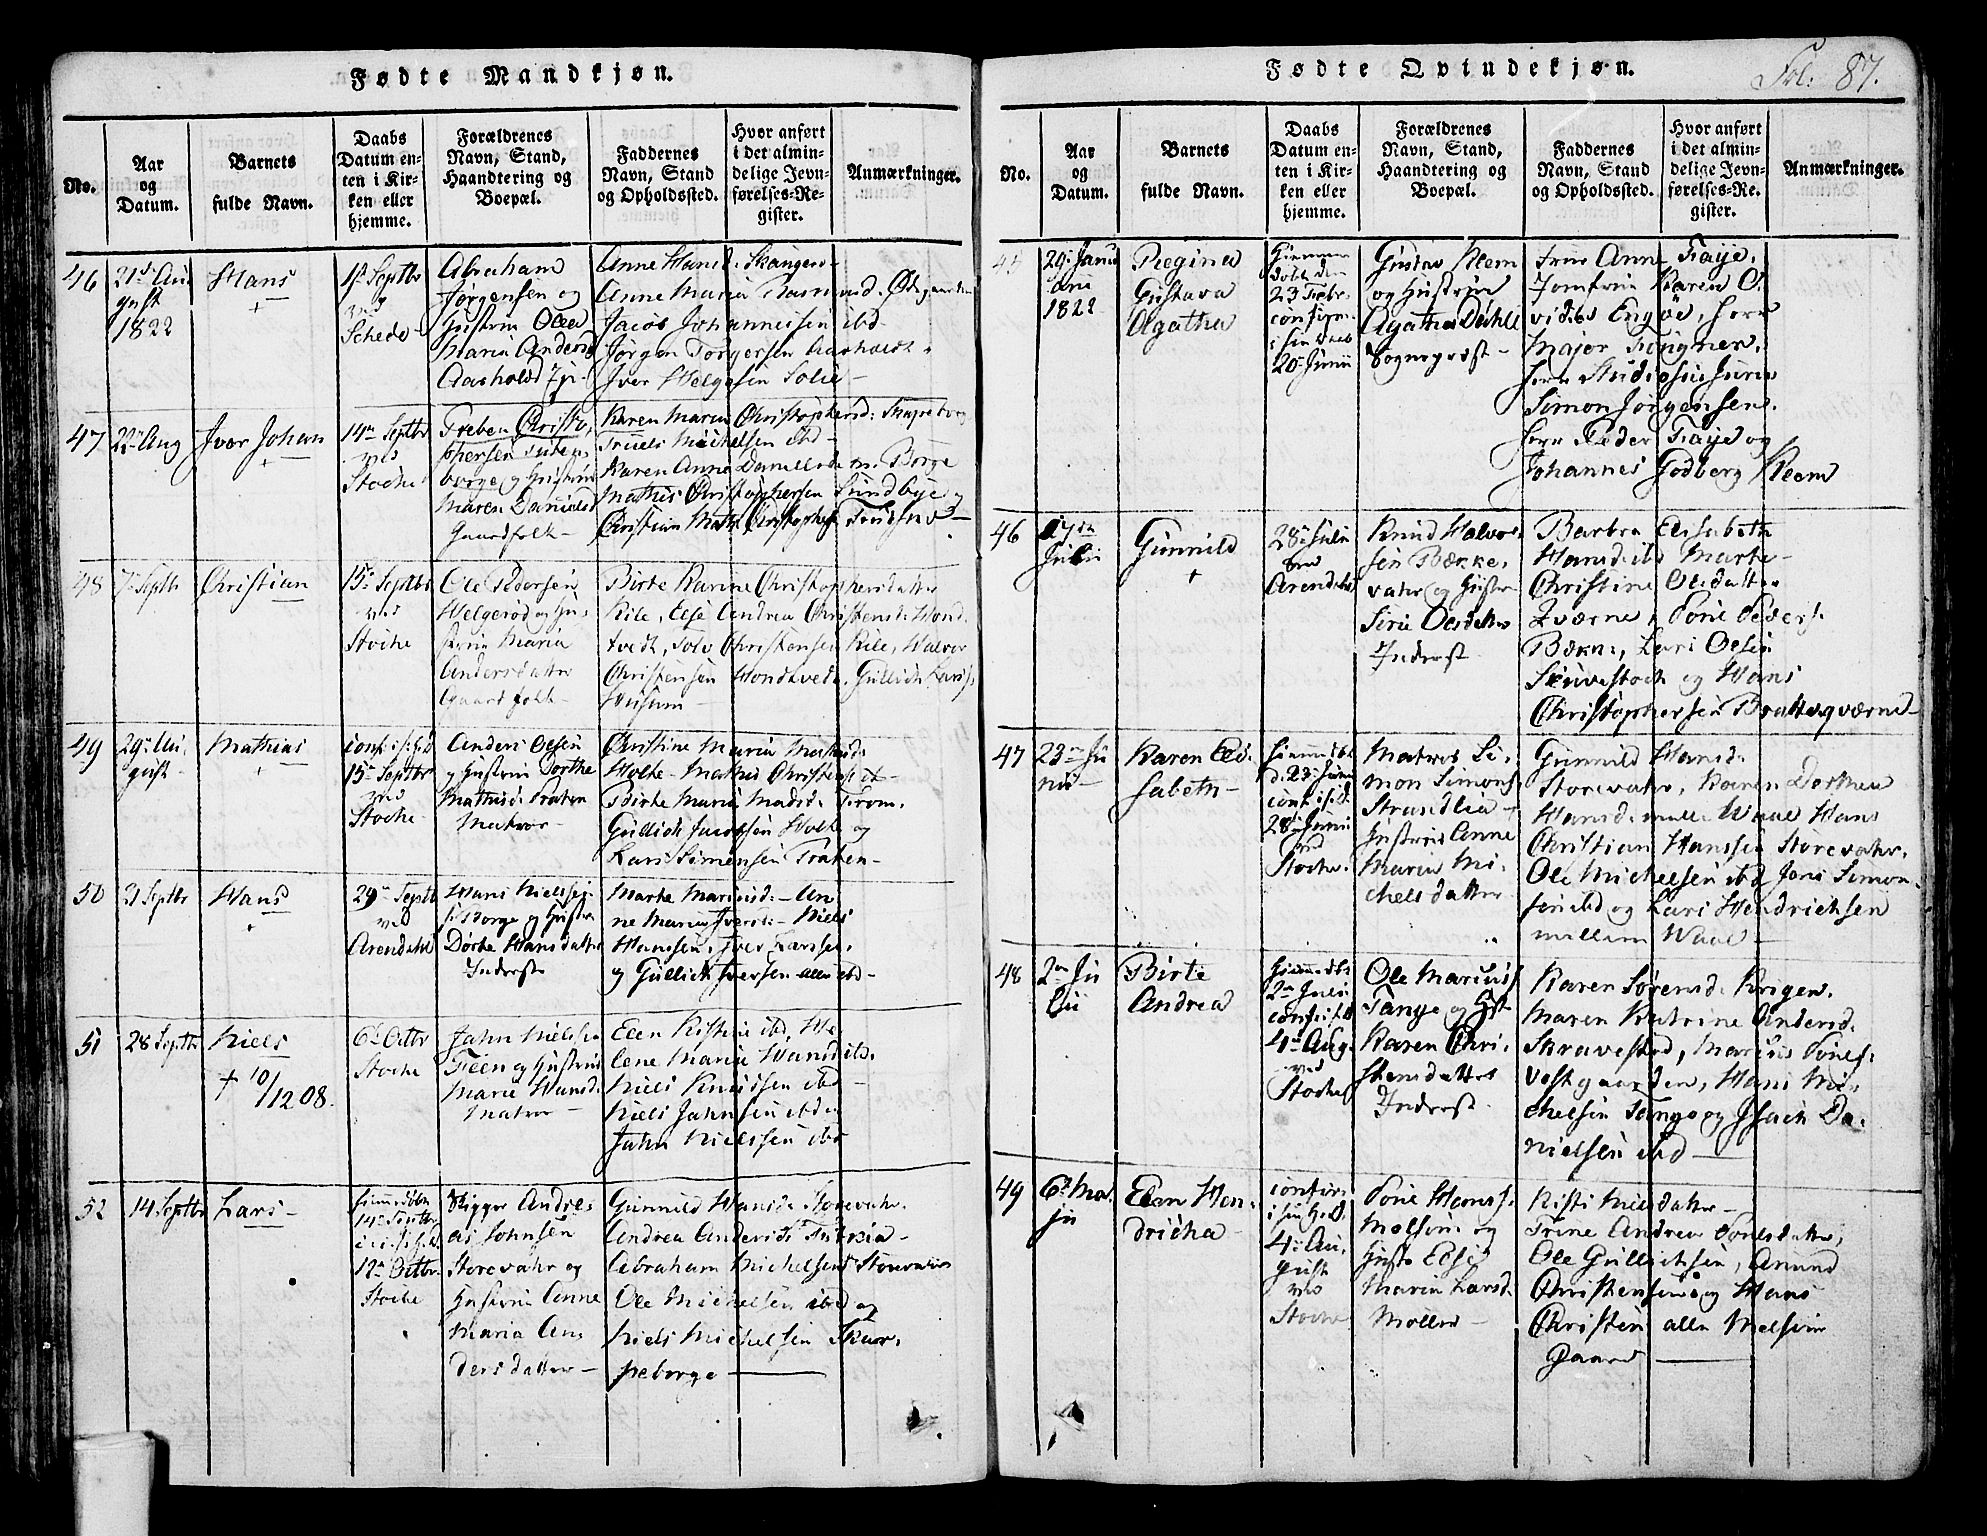 Fødte Mandkjøn.
No.
Aar
og
Datum.
Barnets
fulde Navn.
Daabs
Datum en-
ten i Kir-
ken eller
hjemme.
Forældrenes
Navn, Stand,
Haandtering og
Boepæl.
Faddernes
Navn, Stand
og Opholdssted.
Hvor anført
i det almin-
delige Jevn-
førelses-Re-
gister.
Anmærkninger.
46
21d Au
gust
1822
Hans
+
1st Septbr
ved
Schede-
Abraham
Jørgensen og
Hustrue Olea
Maria Andersd
Aasholdt
Anne Hansd. Skanger-
Anne Maria Rasmusd. Ødegaarden
Jacob Johannessen ibd-
Jørgen Torgersen Aasholdt.
Iver Helgesen Solie-
47
22n Aug
Ivar Johan
+
14n Septbr
ved
Stocke
Preben Christo,
phersen
borge og Hustrue
Maren Danielsd
Gaardfolk-
Karen Maria Christophersd:
Truels Michelsen ibd-
Karen Anne Danielsd. m. Borge
Mathis Christophersen Sundbye og
Christian Math Christophersen
48
7n Septbr
Christian
15n Septbr
ved
Stocke
Ole Pedersen
Helgerød og Hu,
strue Maria
Andersdatter
Gaardfolk-
Birte Karine Christophersdatter
Kile, Else Andrea Christensd: Hond.
tvedt, Solv Christensen Kile, Halvor
Christensen Hondtvedt. Gullich Larss.
Husum-
49
29n Au,
gust
Mathias
+
conf: i:
15n Septbr
ved
Stocke-
Anders Olsen
og Hustrue Dorthe
Mathisd. Traken
Matros-
Christine Maria Mathisd.
Holte- Mathis Christens:
Birte Maria Madsd. From.
Gullich Jacobsen Holte og
Lars Simensen Traken-
50
21 Septbr
Hans
+
29n Septb
ved
Arendahl
Hans Nielsen
Borge og Hustrue
Dorthe Hansdatter
Inderst
Marthe Mariusd.- An
ne Maria Iversd:- Niels
Hanssen, Iver Larssen.
og Gullich Iversen alle ibd-
51
28 Septbr
Niels
+ 10/1208.
6n Octbr
Stocke
Jahn Nielsen
Feen og Hustrue
Marie Hansd.
Matros-
Elen Kistine ibd, He,
lene Maria Hansd ibd.
Niels Knudsen ibd-
Niels Jahnsen ibd
Jahn Nielssen ibd
52
14 Septbr
Lars-
hjemmedøbt
14n Septbr
12n Octbr.
Stocke
Skipper Andre,
as Johnsen
Storevahr og
Hustrue Anne
Maria An,
dersdatter-
Gunnild Hansd. Storevahr.
Andrea Andersd:
Abraham Michelsen Storevahr
Ole Michelsen ibd og
Niels Michelsen Skar,
peborge
Fødte Qvindekjøn.
Fol: 87.
No.
Aar
og
Datum.
Barnets
fulde Navn.
Daabs
Datum en-
ten i Kir-
ken eller
hjemme.
Forældrenes
Navn, Stand,
Haandtering og
Boepæl.
Faddernes
Navn, Stand
og Opholdssted.
Hvor anført
i det almin-
delige Jevn-
førelses-Re-
gister.
Anmærkninger.
45
29n Janu
arii
1822
Regina
Gustava
Agatha
hjemme
døbt den
23 Febr.
confirm.
i sin daab
20n Junii
Gustav Kleem
og Hustrue
Agatha Deihll
Sognepræst-
Frue Anne Faye,
Jomfrue Karen O,
vidia Engøe, Herr
Major Fugner,
Herr Studiosus Juris
Simon Jørgensen.
Herr Peder Faye og
Johannes Godberg Kleem
46
17de
Juli
Gunnild
+
28n Julii
ved
Arendahl
Knud Halvor
sen Bække,
vahr og Hustrue
Sirie Olsdatter
Inderst
Barbra Elisabeth
Hansd ibd Marte
Christine Olsdatter
Kværne, Tønie Peders.
Bække, Lars Olsen
Skuvestoch og Hans
Christophersen Bratteqværne-
47
23n Ju
nii
Karen Eli,
sabeth-
hjemmedøbt
d. 23 Junii
conf: i sit
28n Junii
ved
Stocke.
Matros Si,
mon Simons
Strandlia
Hustrue Anne
Maria Mi,
chelsdatter
Gunnild Hansd.
Storevahr, Karen Dorthea
Hansd. mellem Waal Hans
Christian Hanssen Storevahr.
Ole Michelsen ibd Jens Simon,
sen ibd og Lars Hendrichsen
mellem Waal-
48
2n Ju
lii
Birte
Andrea
hjemmedøbt
2n Julii
conf: i sit
4n Aug.
ved
Stocke
Ole Mariuss
Tange og Hst
Karen Chri,
stensdatter
Inderst
Karen Sørensd. Krigen.
Maren Katrine Andersd.
Skravestad, Marius Tønes.
Vestgaarden, Hans Mi,
chelsen Tange og Isach Da,
nielsen ibd
49
6n Ma,
ju
Elen Hen,
dricha-
confir:
i sin H. D.
4n Au,
gust
ved
Stocke
Tønie Hanss.
Melsom og
Hustr Else
Maria Larsd.
Møller-
Kisti Nielsdatter-
Trine Andrea Tønesdatter,
Ole Gullichsen, Amund
Christensen og Hans
Christen alle Melsom
Gaard